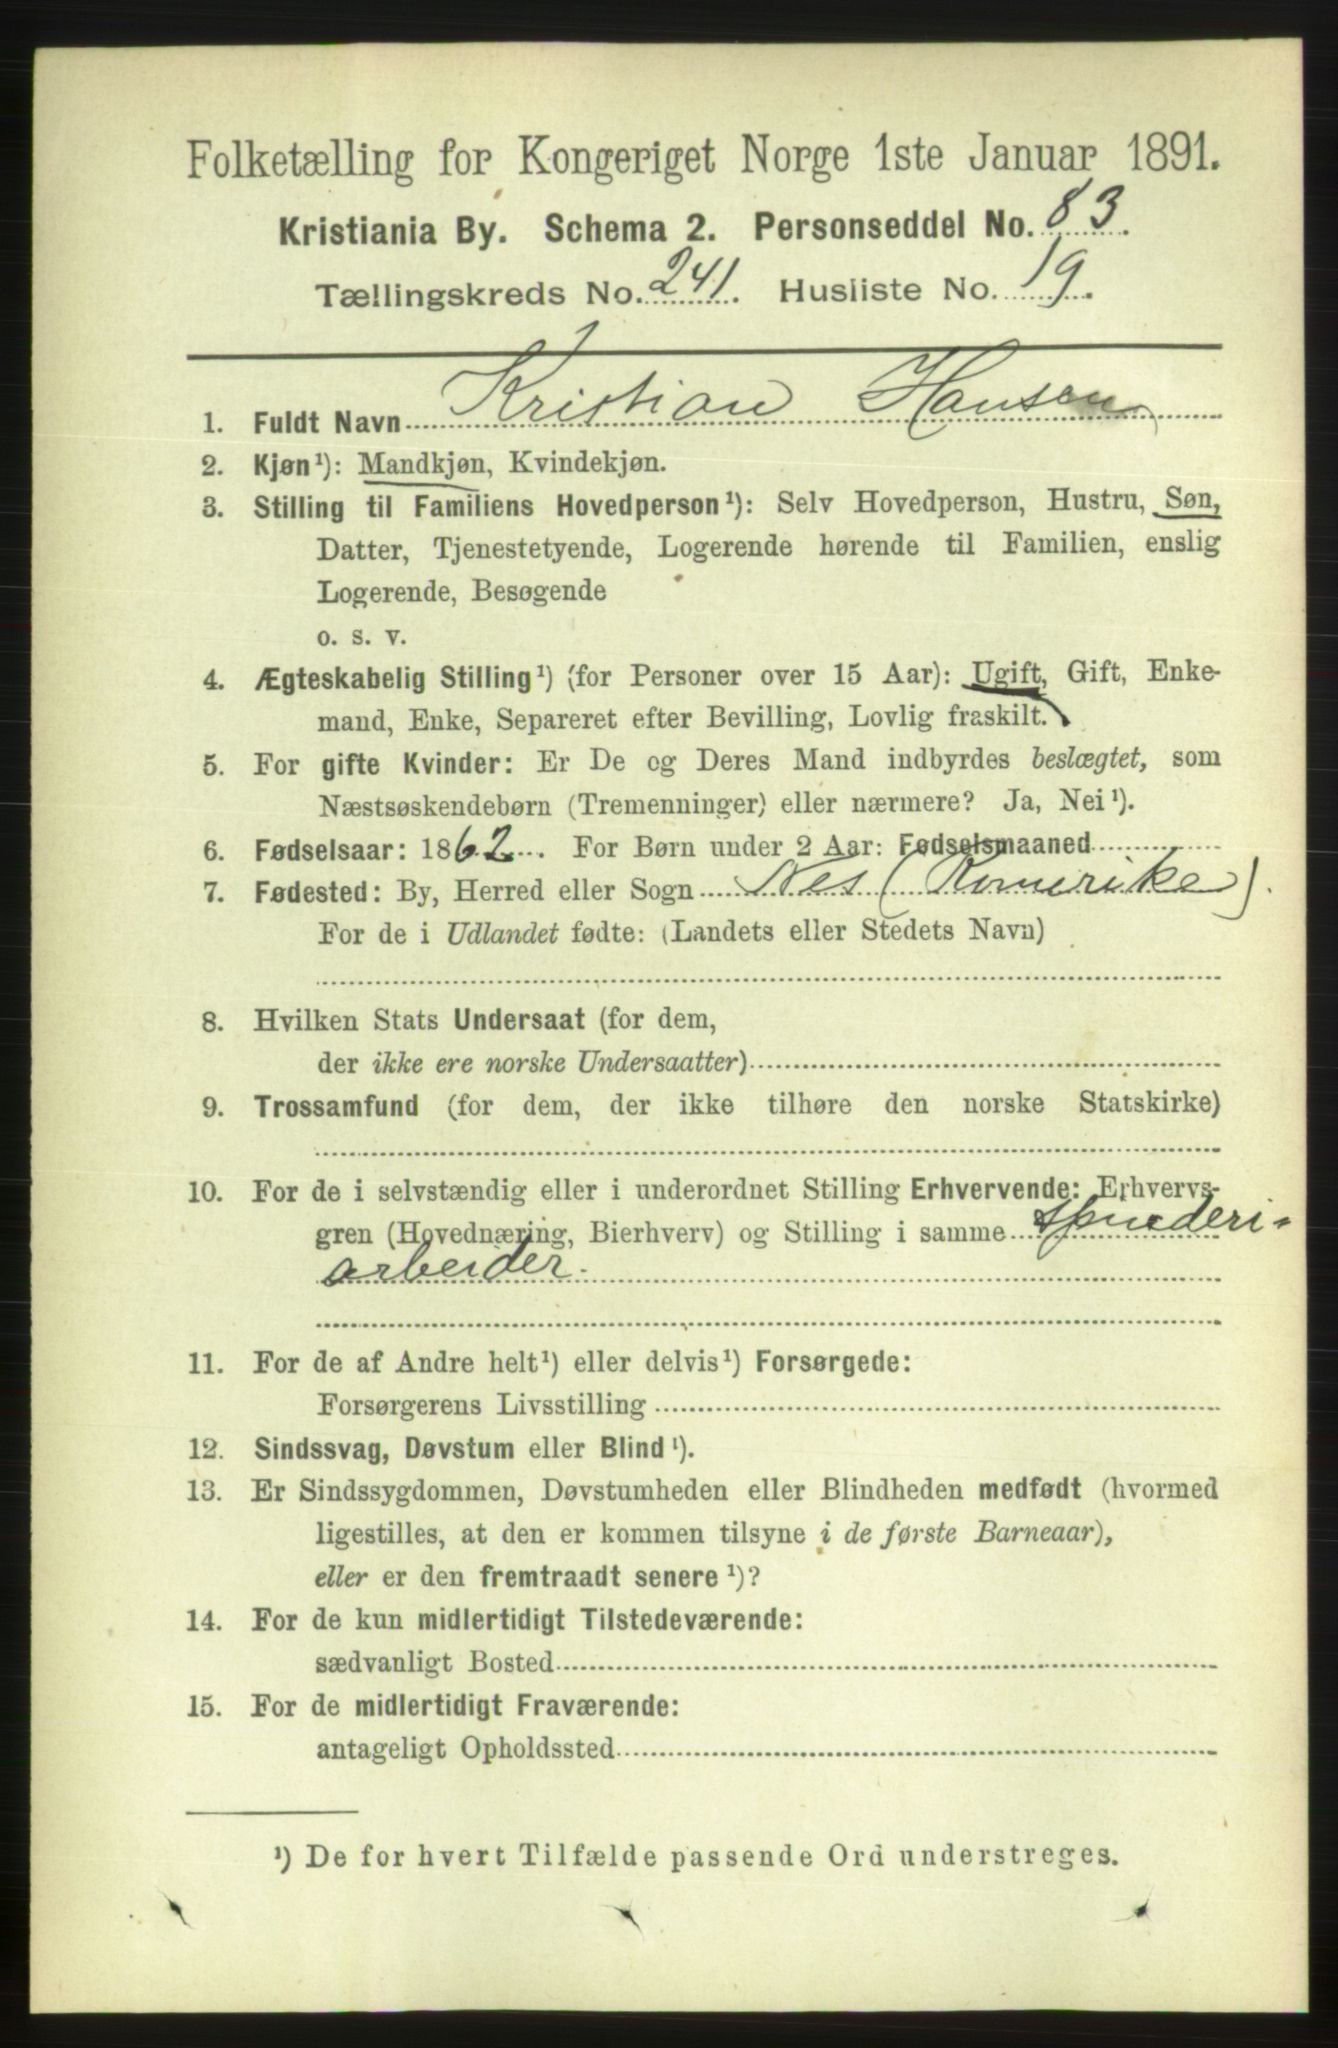 Folketælling for Kongeriget Norge 1ste Januar 1891.
Kristiania By. Schema 2. Personseddel No. 83.
Tællingskreds No. 241. Husliste No. 19.
1. Fuldt Navn Kristian Hansen
2. Kjøn¹): Mandkjøn, Kvindekjøn.
3. Stilling til Familiens Hovedperson¹): Selv Hovedperson, Hustru, Søn,
Datter, Tjenestetyende, Logerende hørende til Familien, enslig
Logerende, Besøgende
o. s. v.
4. Ægteskabelig Stilling¹) (for Personer over 15 Aar): Ugift, Gift, Enke-
mand, Enke, Separeret efter Bevilling, Lovlig fraskilt.
5. For gifte Kvinder: Er De og Deres Mand indbyrdes beslægtet, som
Næstsøskendebørn (Tremenninger) eller nærmere? Ja, Nei¹).
6. Fødselsaar: 1862. For Børn under 2 Aar: Fødselsmaaned
7. Fødested: By, Herred eller Sogn Nes (Romerike).
For de i Udlandet fødte: (Landets eller Stedets Navn)
8. Hvilken Stats Undersaat (for dem,
der ikke ere norske Undersaatter)
9. Trossamfund (for dem, der ikke tilhøre den norske Statskirke)
10. For de i selvstændig eller i underordnet Stilling Erhvervende: Erhvervs-
gren (Hovednæring, Bierhverv) og Stilling i samme Spinderi=
arbeider.
11. For de af Andre helt¹) eller delvis¹) Forsørgede:
Forsørgerens Livsstilling
12. Sindssvag, Døvstum eller Blind¹).
13. Er Sindssygdommen, Døvstumheden eller Blindheden medfødt (hvormed
ligestilles, at den er kommen tilsyne i de første Barneaar),
eller er den fremtraadt senere¹)?
14. For de kun midlertidigt Tilstedeværende:
sædvanligt Bosted
15. For de midlertidigt Fraværende:
antageligt Opholdssted
¹) De for hvert Tilfælde passende Ord understreges.